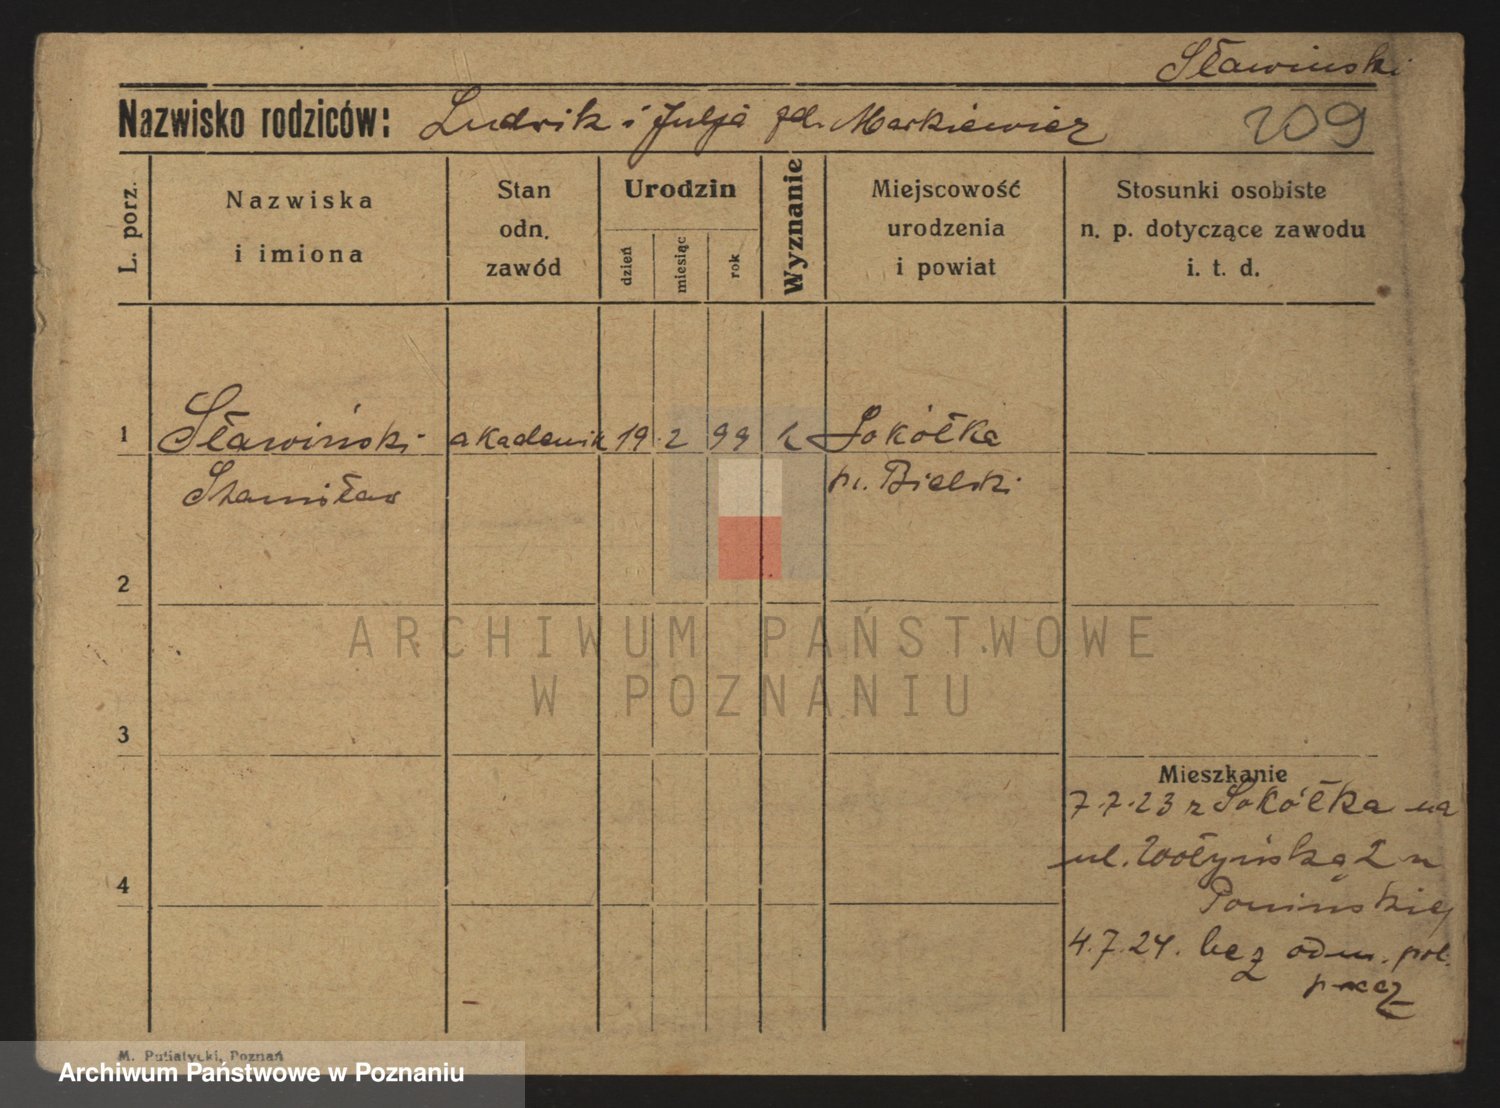 Sławinski
Nazwisko rodziców: Ludwik i Julja zd. Markiewicz 209
L. porz.
Nazwiska
i imiona
Stan
odn.
zawód
Urodzin
dzień
miesiąc
rok
Wyznanie
Miejscowość
urodzenia
i powiat
Stosunki osobiste
n. p. dotyczące zawodu
i. t. d.
1 Sławiński akademik 19 2 99 k Sokółka
Stanisław p. Bielski
2
ARCHIWUM PAŃSTWOWE
W POZNANIU
3
Mieszkanie
7.7.23 z Sokółka na
ul. Wołyńską 2 u
4
Ponińskiej
4.7.24. bez odm. pol.
precz
M. Putiatycki, Poznań
Archiwum Państwowe w Poznaniu